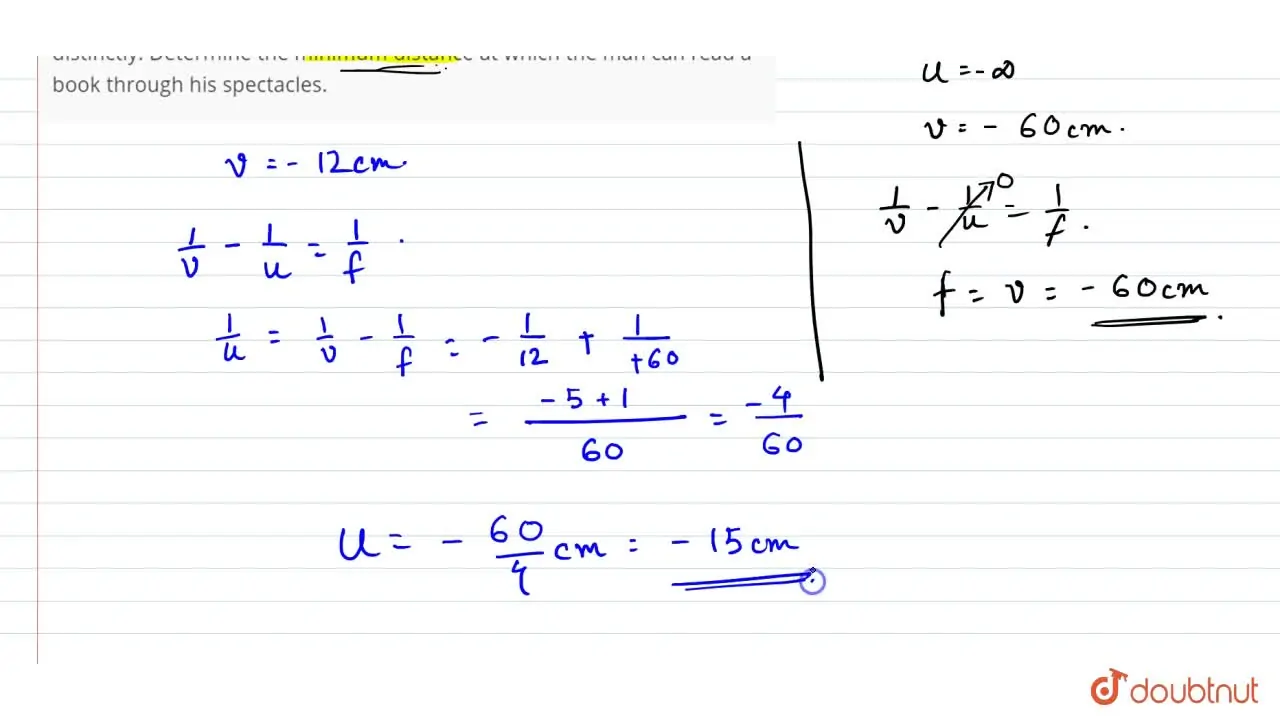 distinctly. Determine the minimum distance at which the man can read a
book through his spectacles.
v = - 12cm.
1/v - 1/u = 1/f .
1/u = 1/v - 1/f = - 1/12 + 1/+60
= -5+1/60 = -4/60
u = - 60/4 cm = - 15cm
u = -∞
v = - 60cm.
1/v - 1/u→0 = 1/f .
f = v = - 60cm.
doubtnut